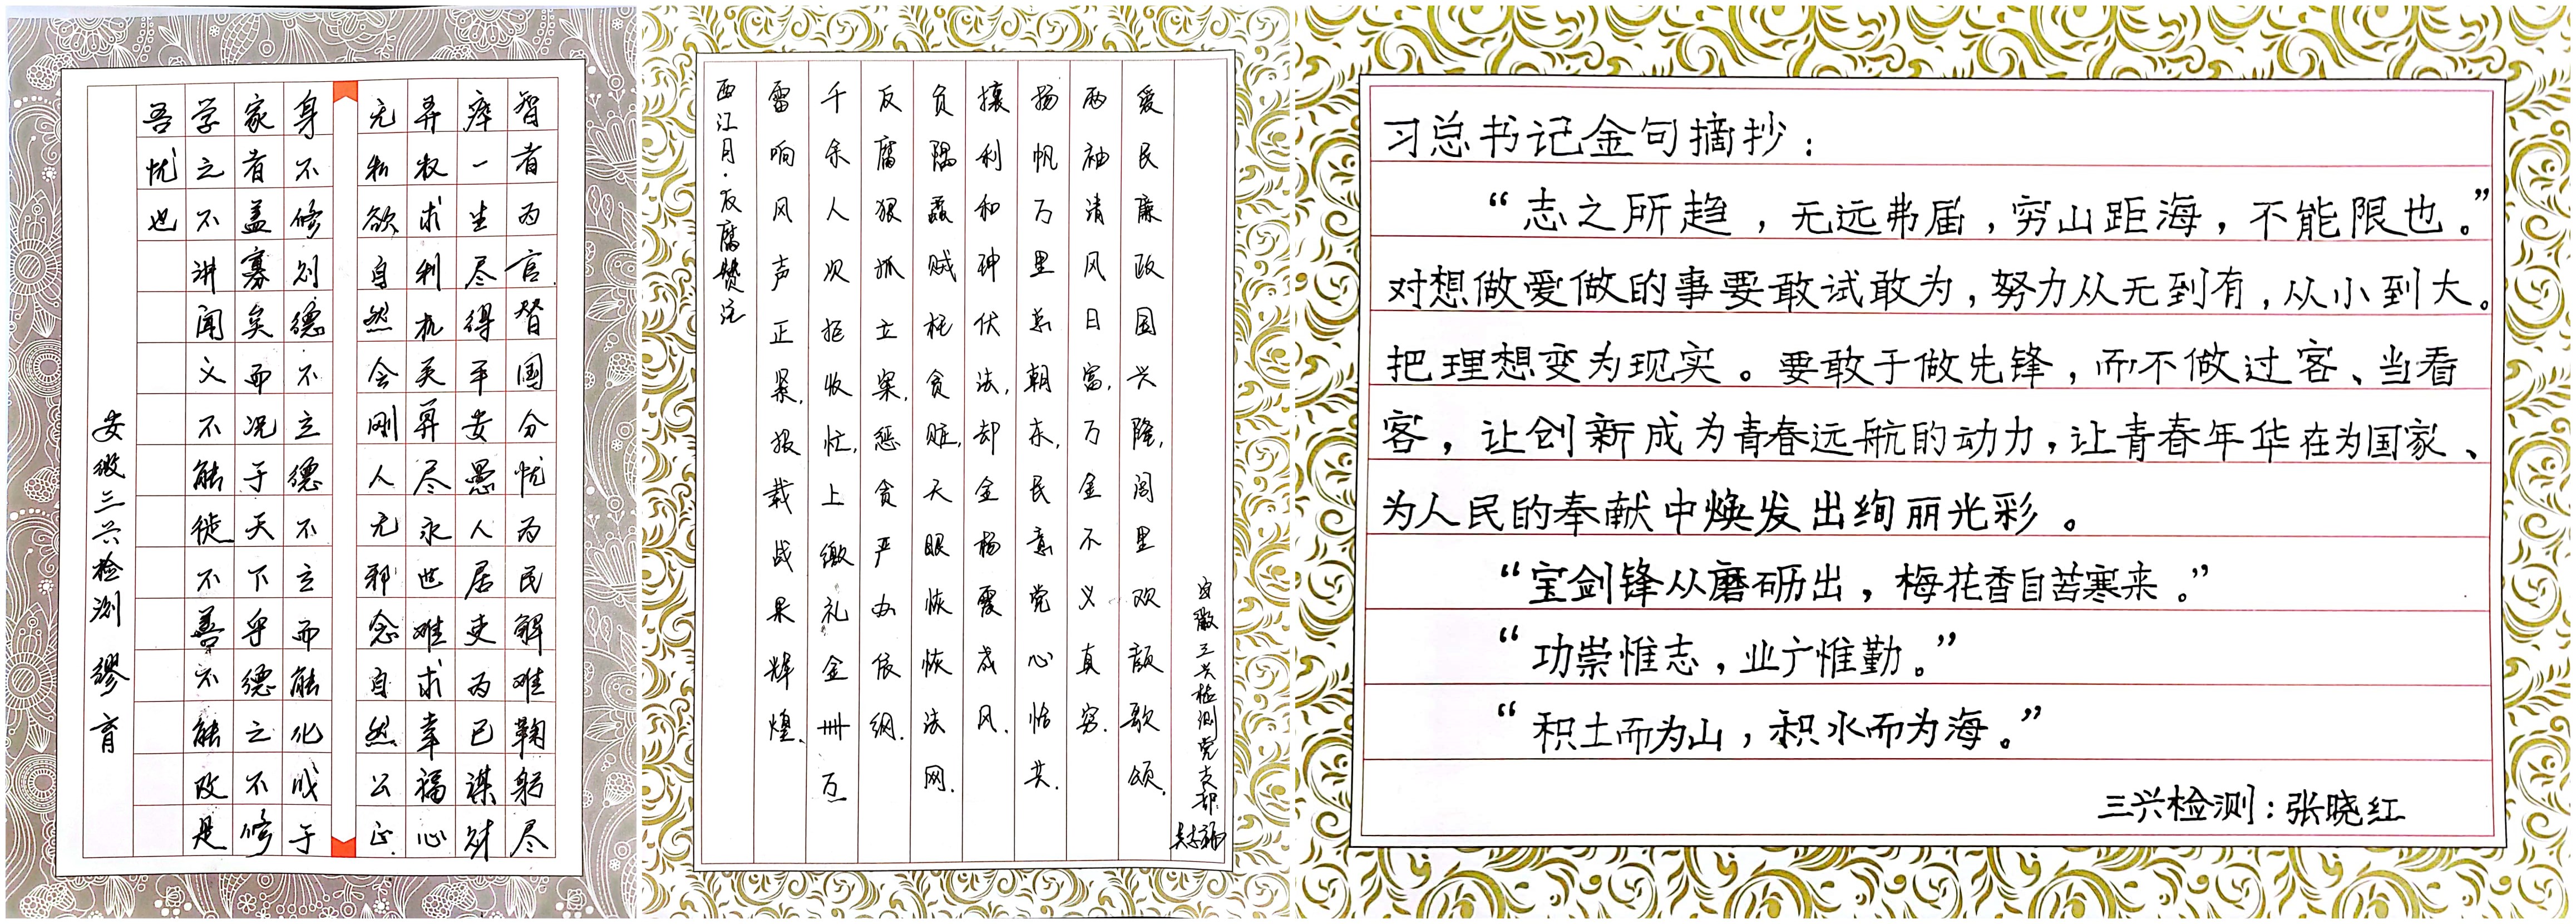 智者为官替国分忧为民解难鞠躬尽
瘁一生尽得平安愚人居吏为己谋财
弄权求利机关算尽永世难求幸福心
无私欲自然会刚人无邪念自然公正.
身不修则德不立德不立而能化成于
家者盖寡矣而况于天下乎德之不修
学之不讲闻义不能徙不善不能改是
吾忧也
安徽三兴检测 缪育
西江月·反腐赞
雷响风声正紧,报载战果辉煌.
千余人次拒收忙,上缴礼金卌万
反腐狠抓立案,惩贪严办依纲.
负隅蠹贼枉贪赃,天眼恢恢法网.
攘利和珅伏法,却金杨震成风.
扬帆万里总朝东,民意党心恰共.
两袖清风日富,万金不义真穷.
爱民廉政国兴隆,闾里欢颜歌颂.
安徽三兴检测党支部
习总书记金句摘抄：
“志之所趋，无远弗届，穷山距海，不能限也。”
对想做爱做的事要敢试敢为，努力从无到有，从小到大。
把理想变为现实。要敢于做先锋，而不做过客、当看
客，让创新成为青春远航的动力，让青春年华在为国家、
为人民的奉献中焕发出绚丽光彩。
“宝剑锋从磨砺出，梅花香自苦寒来。”
“功崇惟志，业广惟勤。”
“积土而为山，积水而为海。”
三兴检测：张晓红